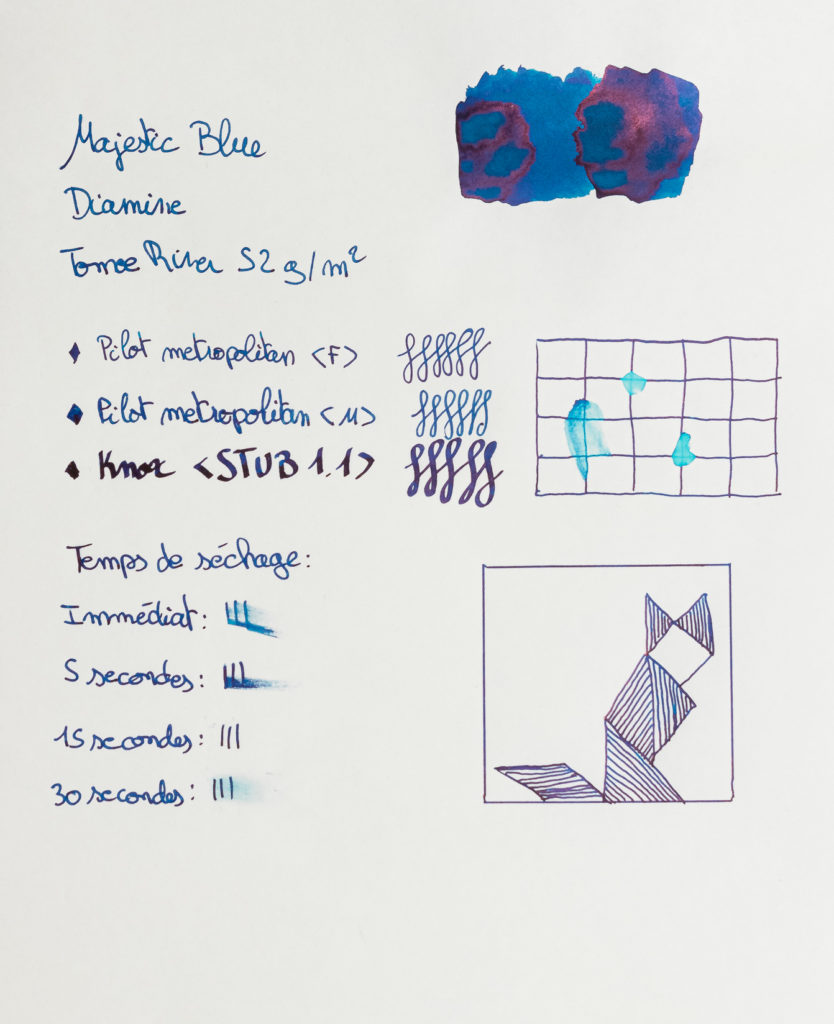 Majestic Blue
Diamine
Tomoe River 52 g/m²
Pilot metropolitan <F>
Pilot metropolitan <M>
Knox <STUB 1.1>
Temps de séchage:
Immédiat:
5 secondes:
15 secondes:
30 secondes: